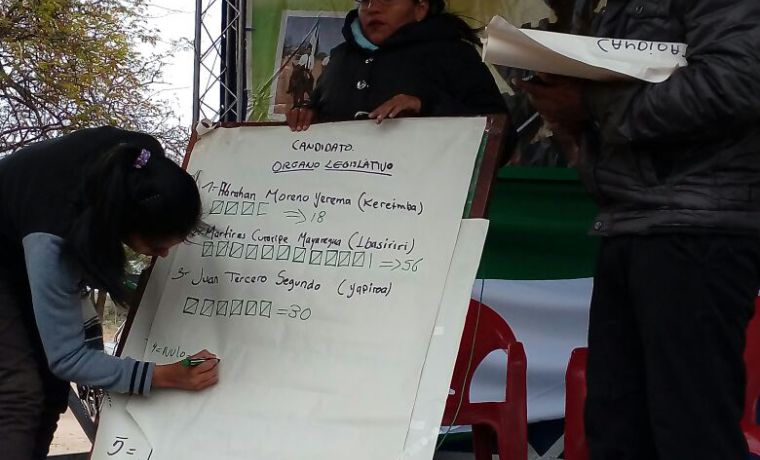 CANDIDATO
CANDIDATO.
ORGANO LEGISLATIVO
1- Abrahan Moreno Yerema (Kereimba)
=>18
Martires Cuyaripe Mayaregua (Ibasiriri)
=>56
3- Juan Tercero Segundo (yapiroa)
=30
4=Nulo=
5=1